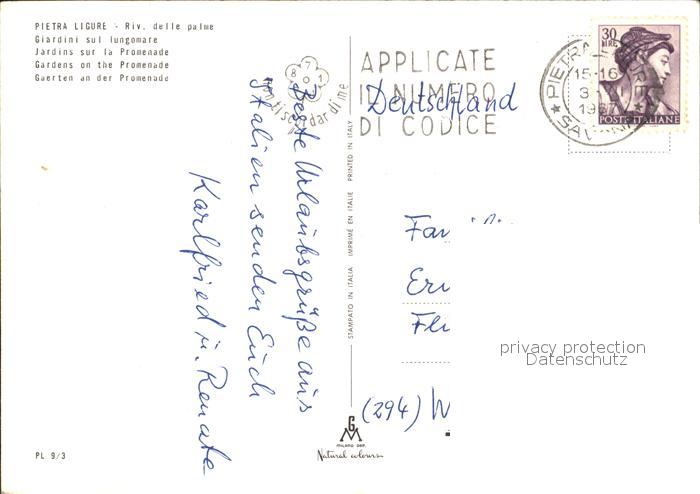 PIETRA LIGURE - Riv. delle palme
Giardini sul lungomare
Jardins sur la Promenade
Gardens on the Promenade
Gaerten an der Promenade
7
8 0 1
non ti scordar di me
APPLICATE
IL NUMERO
DI CODICE
PIETRA LIGURE
15-16
1967
SAVONA
30
LIRE
POSTE ITALIANE
Deutschland
Beste Urlaubsgrüße aus
Italien senden Euch
Karlfried u. Renate
STAMPATO IN ITALIA IMPRIMÉ EN ITALIE PRINTED IN ITALY
Fa
Er
Fl
(294) W
privacy protection
Datenschutz
MILANO DEP.
Natural colours
PL 9/3